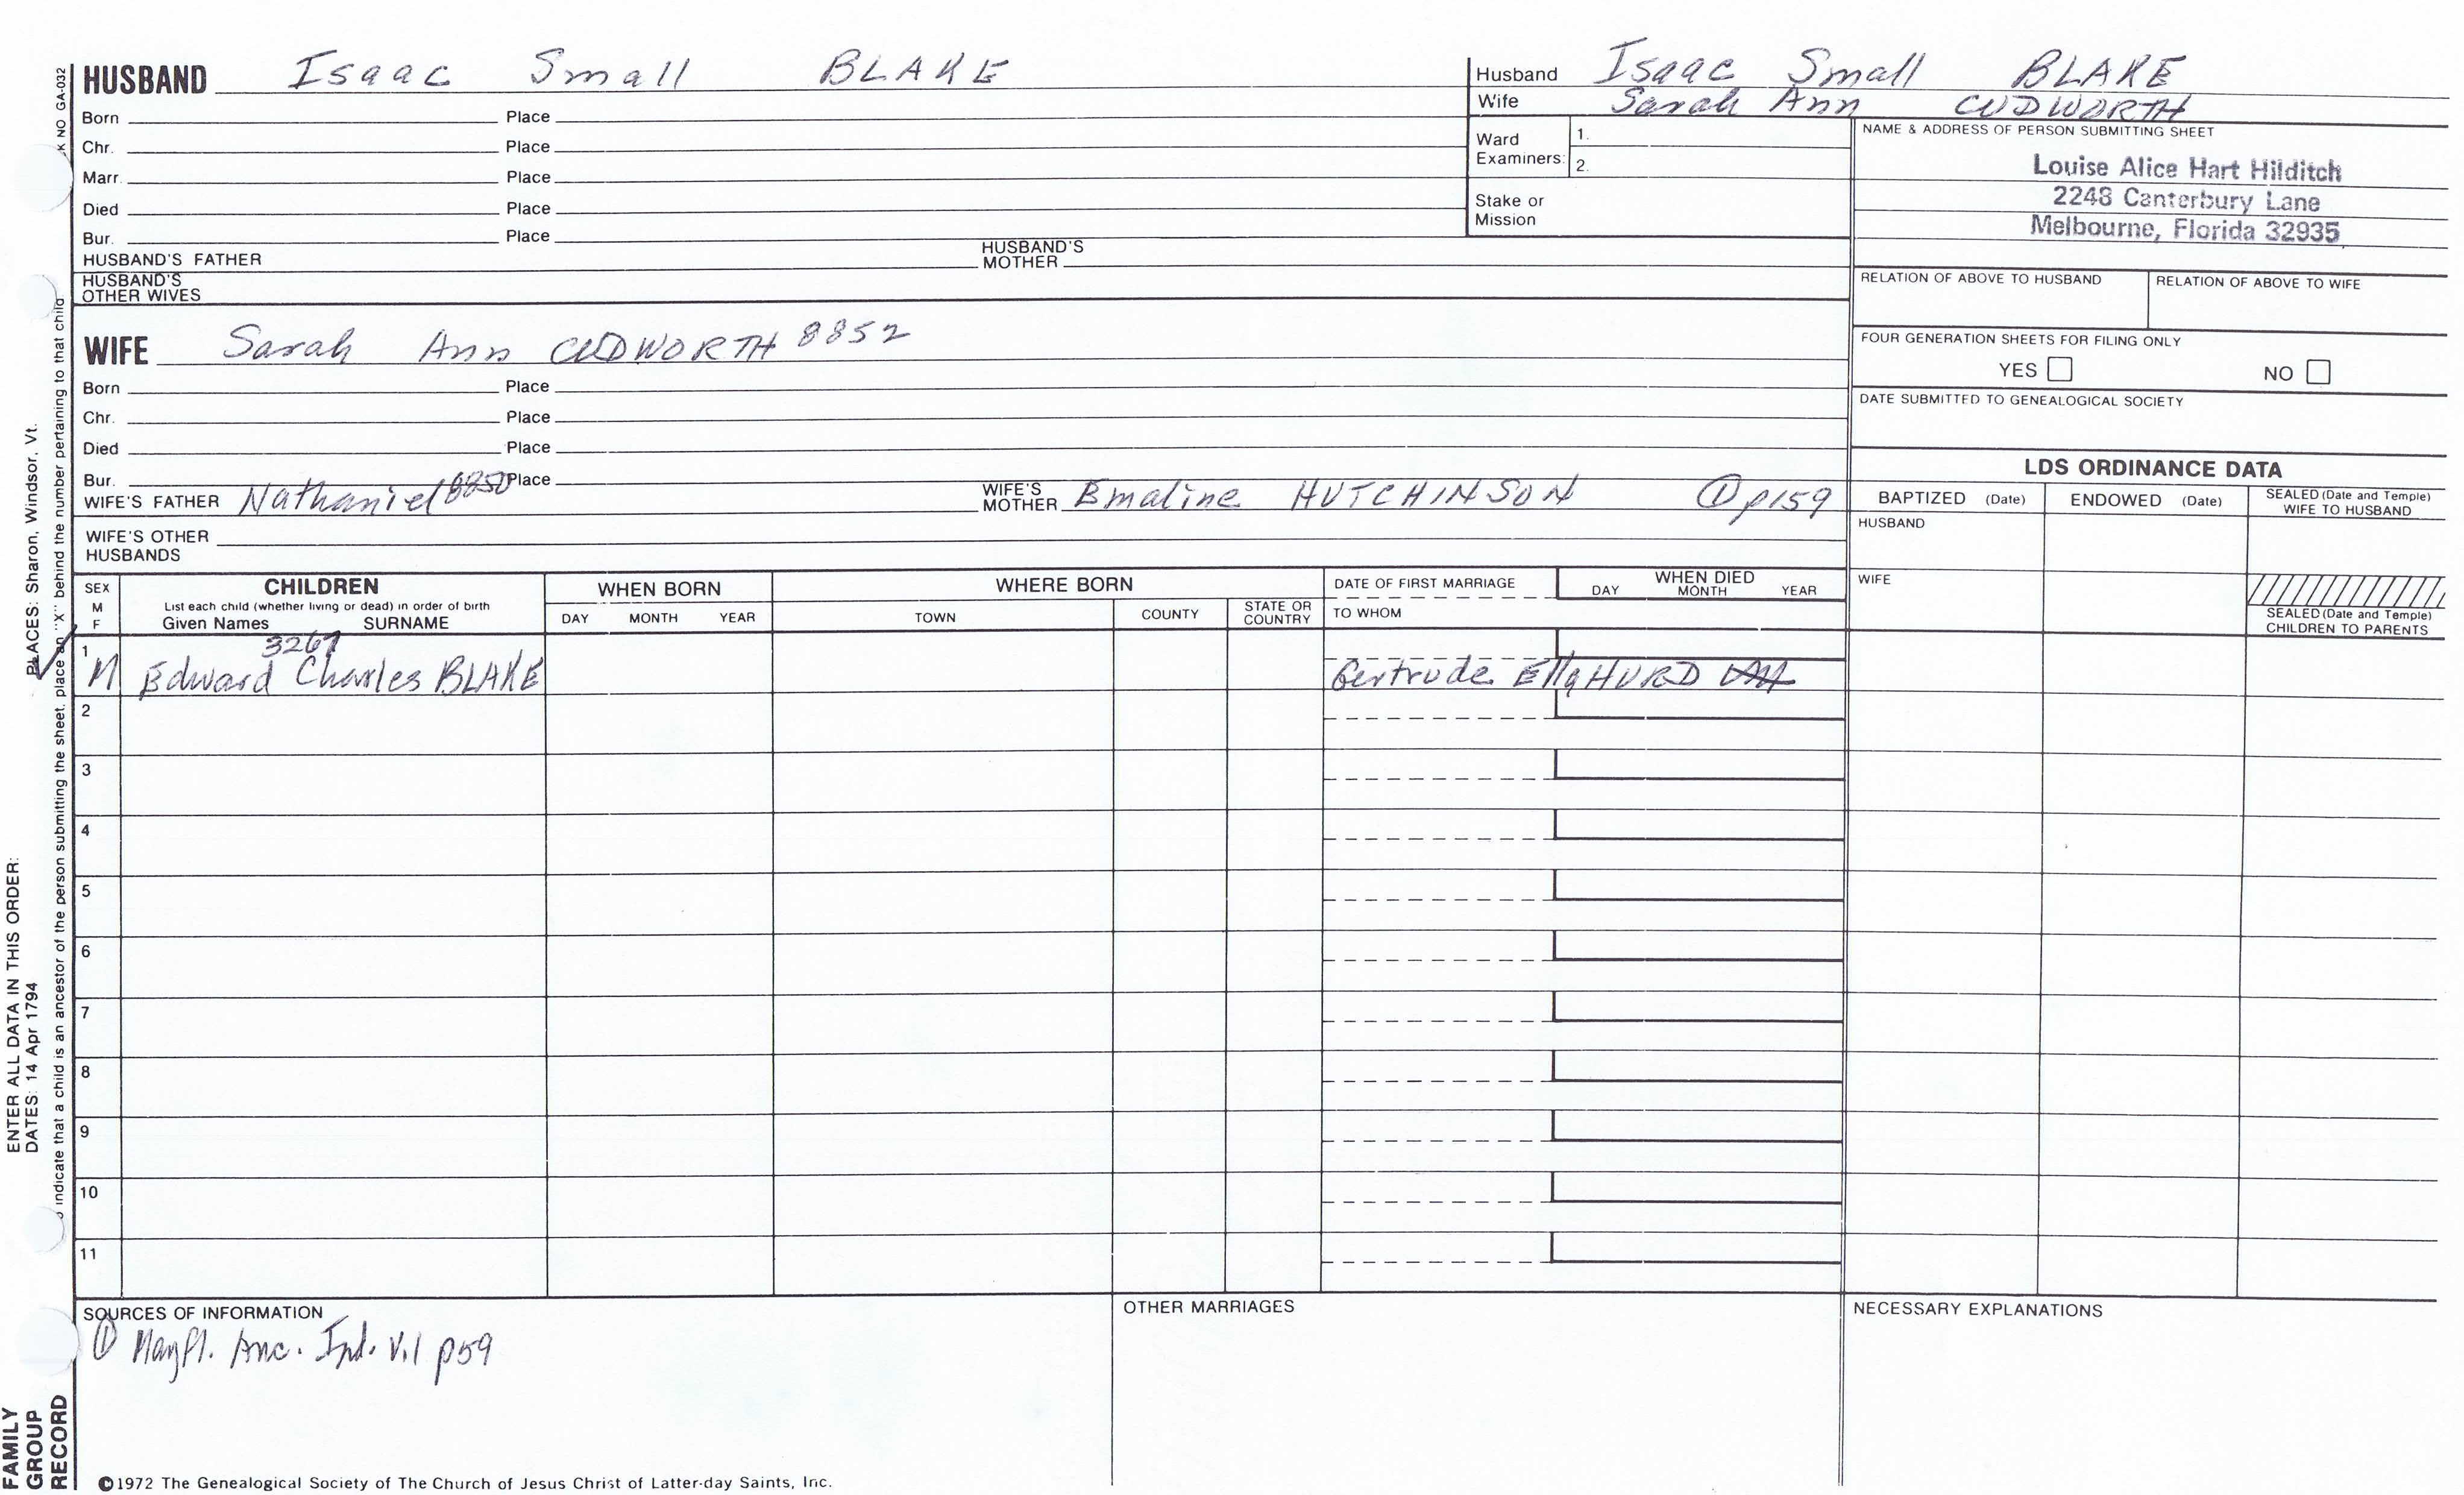 HUSBAND Isaac Small BLAKE
Born Place
Chr. Place
Marr. Place
Died Place
Bur. Place
HUSBAND'S FATHER HUSBAND'S MOTHER
HUSBAND'S OTHER WIVES
Husband Isaac Small BLAKE
Wife Sarah Ann CUDWORTH
Ward Examiners: 1.
2.
Stake or Mission
NAME & ADDRESS OF PERSON SUBMITTING SHEET
Louise Alice Hart Hilditch
2248 Canterbury Lane
Melbourne, Florida 32935
RELATION OF ABOVE TO HUSBAND RELATION OF ABOVE TO WIFE
FOUR GENERATION SHEETS FOR FILING ONLY
YES NO
DATE SUBMITTED TO GENEALOGICAL SOCIETY
WIFE Sarah Ann CUDWORTH 8852
Born Place
Chr. Place
Died Place
Bur. Place
WIFE'S FATHER Nathaniel 8850 WIFE'S MOTHER Emaline HUTCHINSON ① p159
WIFE'S OTHER HUSBANDS
LDS ORDINANCE DATA
BAPTIZED (Date) ENDOWED (Date) SEALED (Date and Temple) WIFE TO HUSBAND
HUSBAND
WIFE
SEALED (Date and Temple) CHILDREN TO PARENTS
SEX M F
CHILDREN
List each child (whether living or dead) in order of birth
Given Names SURNAME
WHEN BORN
DAY MONTH YEAR
WHERE BORN
TOWN COUNTY STATE OR COUNTRY
DATE OF FIRST MARRIAGE
TO WHOM
WHEN DIED
DAY MONTH YEAR
3267
1 M Edward Charles BLAKE Gertrude Ella HURD
2
3
4
5
6
7
8
9
10
11
SOURCES OF INFORMATION
① Mayfl. Anc. Ind. V.1 p59
OTHER MARRIAGES
NECESSARY EXPLANATIONS
©1972 The Genealogical Society of The Church of Jesus Christ of Latter-day Saints, Inc.
FAMILY
GROUP
RECORD
ENTER ALL DATA IN THIS ORDER:
DATES: 14 Apr 1794
PLACES: Sharon, Windsor, Vt.
indicate that a child is an ancestor of the person submitting the sheet, place an "X" behind the number pertaining to that child
K NO GA-032